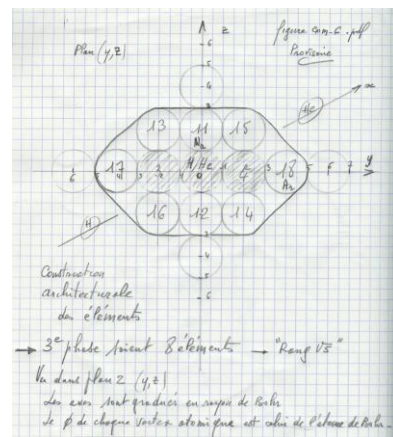 Plan (y,z)
z
figure com-6.pdf
Provisoire
6
5
x
He
13
11
15
Na
H/He
y
6
17
0
18
Ar
6
7
H
16
12
14
4
5
6
Construction
architecturale
des éléments
→ 3e phase soient 8 éléments → "Rang V3"
Vu dans plan 2 (y,z)
Les axes sont gradués en rayon de Bohr
Le ϕ de chaque vortex atomique est celui de l'atome de Bohr.